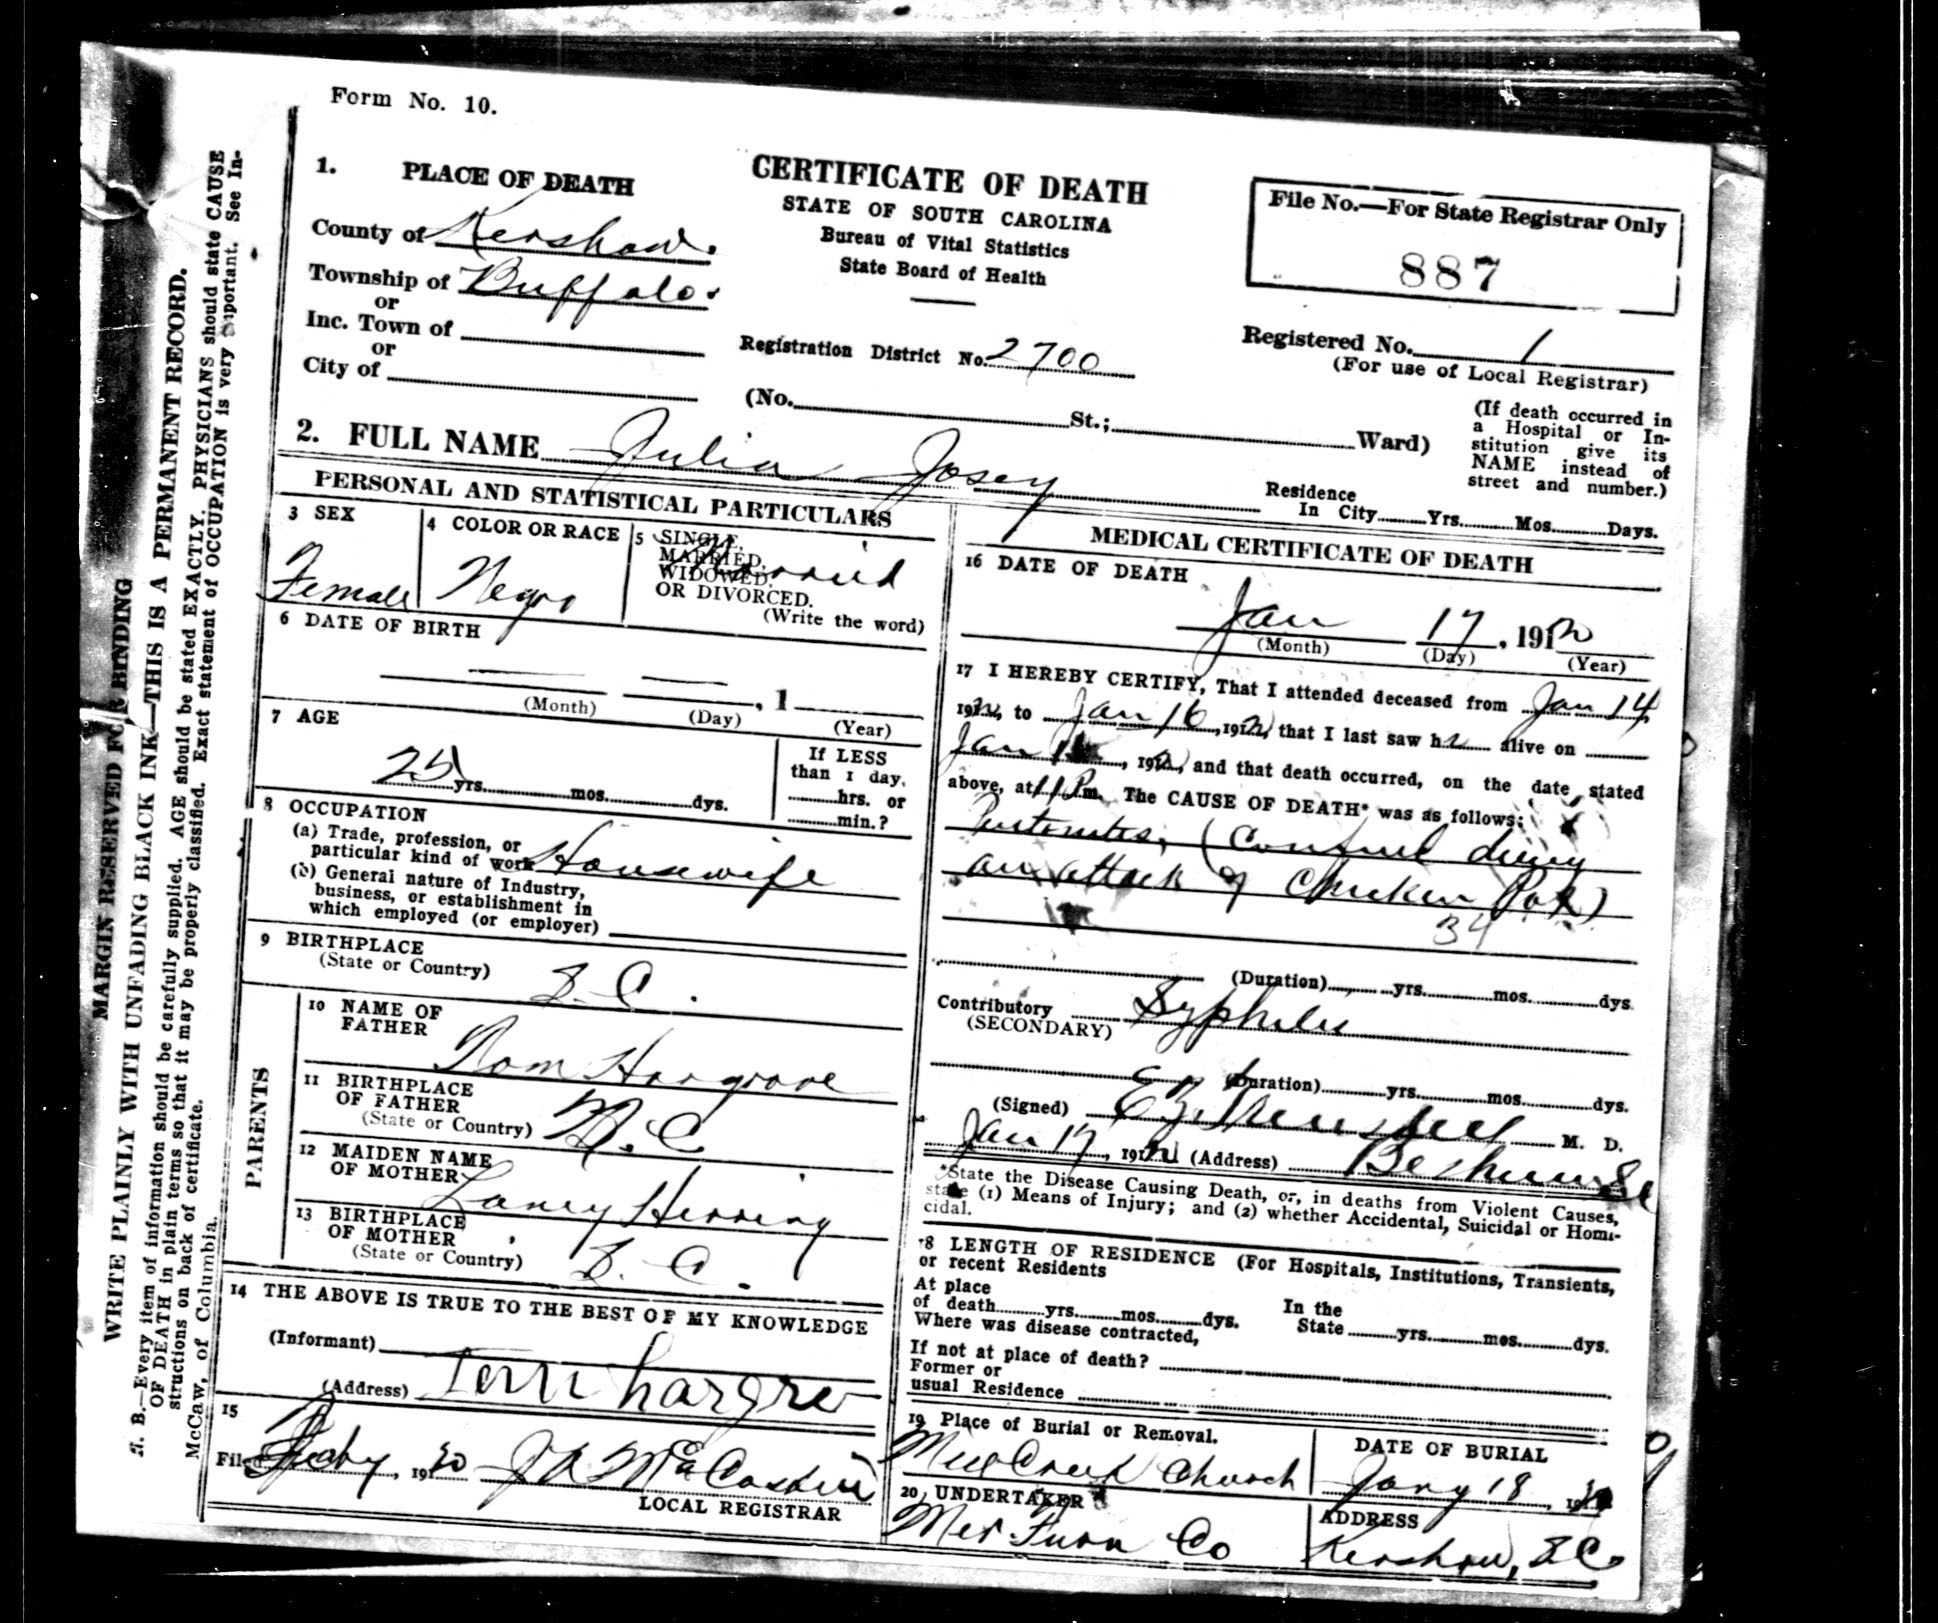 Form No. 10.
1. PLACE OF DEATH
CERTIFICATE OF DEATH
STATE OF SOUTH CAROLINA
Bureau of Vital Statistics
State Board of Health
File No.—For State Registrar Only
887
County of Kershaw.
Township of Buffalo.
or
Inc. Town of
or
City of
Registration District No. 2700
Registered No. 1
(For use of Local Registrar)
(No. St.; Ward)
(If death occurred in
a Hospital or In-
stitution give its
NAME instead of
street and number.)
2. FULL NAME Julia Josey
Residence
In City Yrs. Mos. Days.
PERSONAL AND STATISTICAL PARTICULARS
3 SEX
Female
4 COLOR OR RACE
Negro
5 SINGLE,
MARRIED,
WIDOWED,
OR DIVORCED.
(Write the word)
Married
6 DATE OF BIRTH
, 1
(Month) (Day) (Year)
7 AGE
25 yrs. mos. dys.
If LESS
than 1 day,
hrs. or
min.?
8 OCCUPATION
(a) Trade, profession, or
particular kind of work Housewife
(b) General nature of Industry,
business, or establishment in
which employed (or employer)
9 BIRTHPLACE
(State or Country) S. C.
PARENTS
10 NAME OF
FATHER
Tom Hargrove
11 BIRTHPLACE
OF FATHER
(State or Country) N. C.
12 MAIDEN NAME
OF MOTHER
Laney Herring
13 BIRTHPLACE
OF MOTHER
(State or Country) S. C.
14 THE ABOVE IS TRUE TO THE BEST OF MY KNOWLEDGE
(Informant)
(Address) Tom hargro
15
Filed , 19
LOCAL REGISTRAR
MEDICAL CERTIFICATE OF DEATH
16 DATE OF DEATH
Jan 17, 191
(Month) (Day) (Year)
17 I HEREBY CERTIFY, That I attended deceased from Jan 14,
191 , to Jan 16, 191 , that I last saw h alive on
Jan , 191 , and that death occurred, on the date stated
above, at 11 P.m. The CAUSE OF DEATH* was as follows:
(
an attack of Chicken Pox)
34
(Duration) yrs. mos. dys.
Contributory Syphilis
(SECONDARY)
(Duration) yrs. mos. dys.
(Signed) M. D.
Jan 17, 191 (Address)
*State the Disease Causing Death, or, in deaths from Violent Causes,
state (1) Means of Injury; and (2) whether Accidental, Suicidal or Homi-
cidal.
18 LENGTH OF RESIDENCE (For Hospitals, Institutions, Transients,
or recent Residents
At place
of death yrs. mos. dys.
In the
State yrs. mos. dys.
Where was disease contracted,
If not at place of death?
Former or
usual Residence
19 Place of Burial or Removal.
Church
DATE OF BURIAL
Jany 18, 19
20 UNDERTAKER
Mer. Furn Co
ADDRESS
Kershaw, S.C.
MARGIN RESERVED FOR BINDING
WRITE PLAINLY WITH UNFADING BLACK INK—THIS IS A PERMANENT RECORD.
N. B.—Every item of information should be carefully supplied. AGE should be stated EXACTLY. PHYSICIANS should state CAUSE
OF DEATH in plain terms so that it may be properly classified. Exact statement of OCCUPATION is very important. See In-
structions on back of certificate.
McCaw, of Columbia.